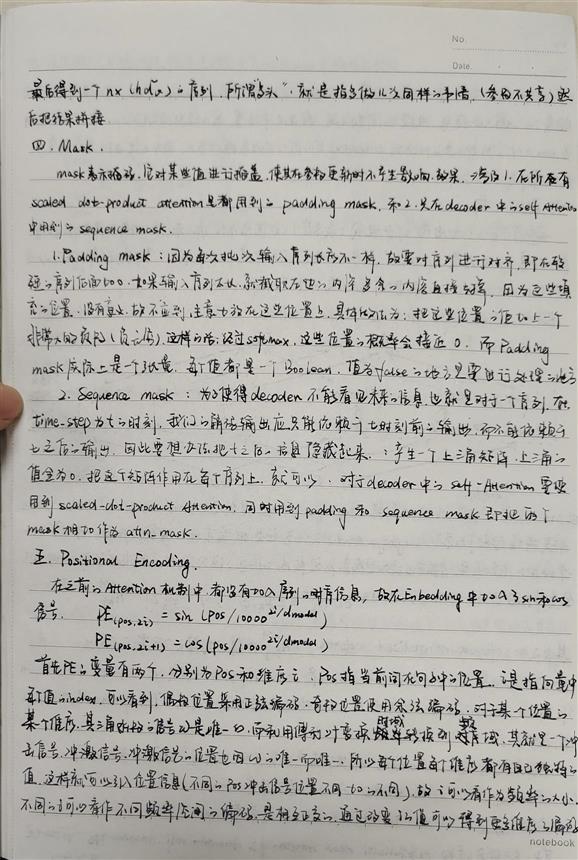 No.
Date.
最后得到一个 nx(hdv) 的序列, 所谓"多头", 就是指多做几次同样的事情, (参数不共享) 然
后把结果拼接
四. Mask.
mask表示掩码, 它对某些值进行掩盖, 使其在参数更新时不产生影响效果, 1.在所有
scaled dot-product attention是都用到的 padding mask, 和2.只在decoder中的self-Attention
中用到的 sequence mask.
1. Padding mask: 因为每次批次输入序列长度不一样, 故要对序列进行对齐, 即在较
短的序列后面加0. 如果输入序列太长, 就截取左边的内容多余的内容直接舍弃. 因为这些填
充的位置, 没有意义, 故不应到注意力放在这些位置上. 具体做法为: 把这些位置的值加上一个
非常大的负数(负无穷), 这样的话, 经过softmax, 这些位置的概率会接近0. 而Padding
mask实际上是一个张量, 每个值都是一个Boolean, 值为false的地方是要进行处理的地方
2. Sequence mask: 为了使得decoder不能看见未来的信息也就是对于一个序列, 在
time-step为t的时刻, 我们的解码输出应只能依赖于t时刻前的输出, 而不能依赖于
t之后的输出, 因此要想办法把t之后的信息隐藏起来.: 产生一个上三角矩阵, 上三角的
值全为0. 把这个矩阵作用在每个序列上, 就可以. 对于decoder中的self-Attention需要
用到scaled-dot-product Attention, 同时用到padding 和 sequence mask 即把两个
mask相加作为attn_mask.
五. Positional Encoding.
在之前的Attention机制中, 都没有加入序列的时序信息, 故在Embedding中加入了sin和cos
信号. PE(pos,2i) = sin(pos/10000^2i/dmodel)
PE(pos,2i+1) = cos(pos/10000^2i/dmodel)
首先PE的变量有两个, 分别为Pos和维度i. Pos指当前词在句子中的位置. i是指向量中
每个值的index, 可以看到, 偶数位置采用正弦编码, 奇数位置使用余弦编码. 对于某个位置的
某个维度, 其三角函数的信号ω是唯一的, 而利用傅利叶变换时域转换到频域, 其就是一个冲
击信号, 冲激信号, 冲激信号的位置也因ω的唯一而唯一, 所以每个位置每个维度都有自己独特的
值, 这样就可以引入位置信息(不同的Pos冲击信号位置不同, ω的不同), 故i可以看作为频率的大小.
不同的i可以看作不同频率空间的编码, 是相互正交的, 通过改变i的值可以得到更多维度的编码
notebook